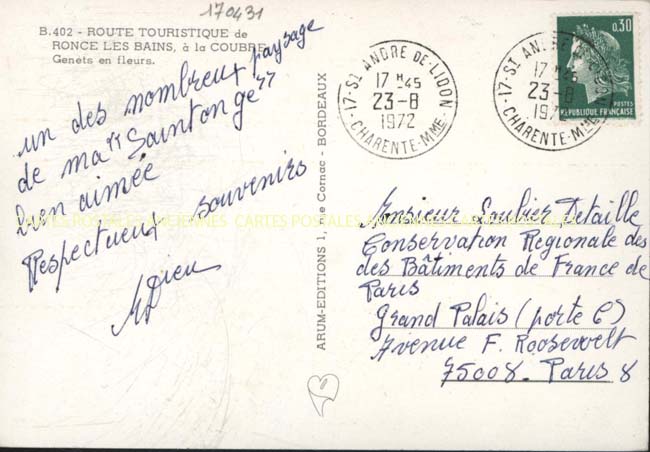 170431
B.402 - ROUTE TOURISTIQUE de
RONCE LES BAINS, à la COUBRE
Genêts en fleurs.
un des nombreux paysage
de ma "Saintonge"
bien aimée
Respectueux souvenirs
ARUM-EDITIONS 1, Rue Cornac - BORDEAUX
17 - ST ANDRE DE LIDON
17 H 45
23-8
1972
CHARENTE-MME
17 - ST ANDRE DE LIDON
17 H 45
23-8
1972
CHARENTE-MME
0,30
POSTES
REPUBLIQUE FRANÇAISE
Monsieur Soubier Detaille
Conservation Regionale des
des Bâtiments de France de
Paris
Grand Palais (porte C)
Avenue F. Roosevelt
75008. Paris 8
CARTES POSTALES ANCIENNES CARTES POSTALES ANCIENNES CARTES POSTALES